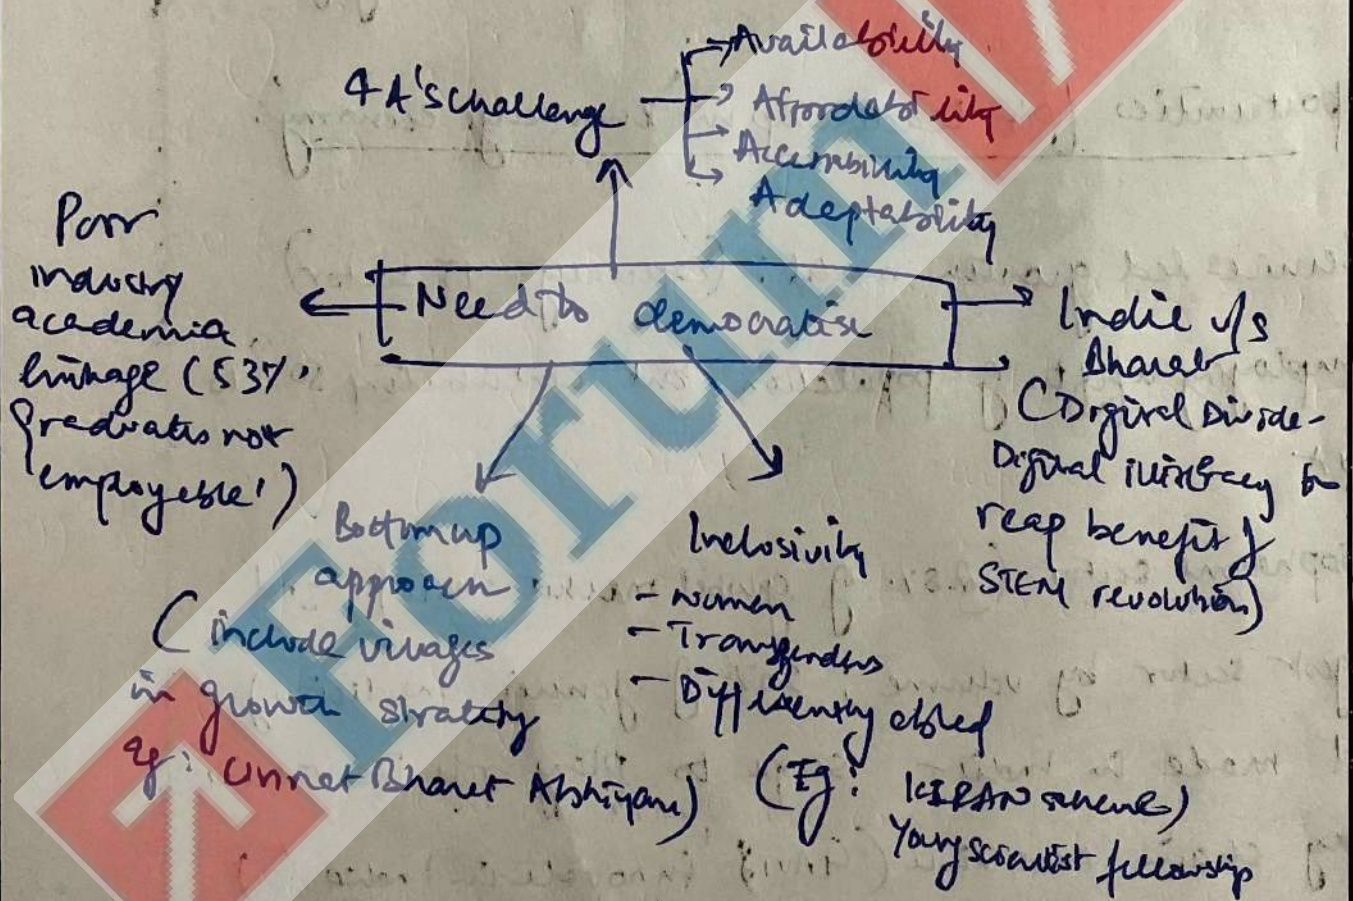 4 A's challenge
Availability
Affordability
Accessibility
Adaptability
Need to democratise
Poor
industry
academia
linkage (53%
graduates not
'employable')
India v/s
Bharat
(Digital Divide-
Digital illiteracy to
reap benefit of
STEM revolution)
Bottom up
approach
(include villages
in growth strategy
eg: Unnat Bharat Abhiyan)
Inclusivity
- women
- Transgenders
- Differently abled
(Eg: KIRAN scheme)
Young scientist fellowship
Forum